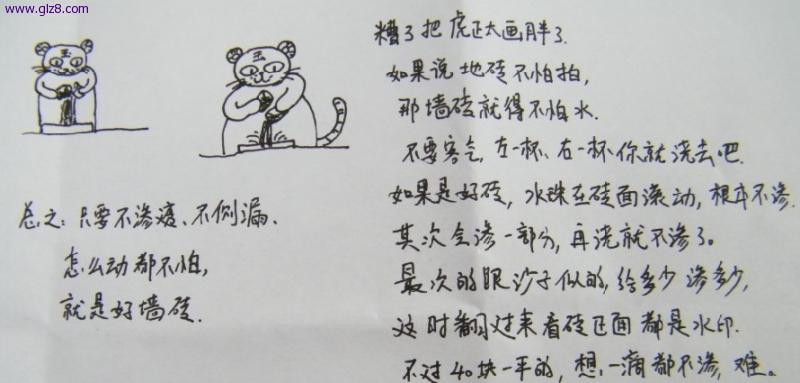 www.glz8.com
王
王
糟了把虎正太画胖了.
如果说地砖不怕拍,
那墙砖就得不怕水.
不要客气,左一杯、右一杯你就浇去吧.
如果是好砖,水珠在砖面滚动,根本不渗.
其次会渗一部分,再浇就不渗了。
最次的跟沙子似的,给多少渗多少,
这时翻过来看砖正面都是水印.
不过40块一平的,想一滴都不渗,难。
总之:只要不渗透、不侧漏、
怎么动都不怕,
就是好墙砖.